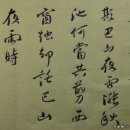 期巴山夜雨漲秋
池何當共剪西
窗燭却話巴山
夜雨時